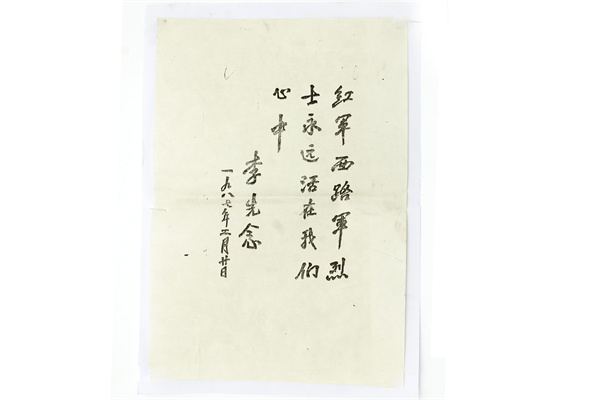 红军西路军烈
士永远活在我们
心中
李先念
一九八七年 月廿日